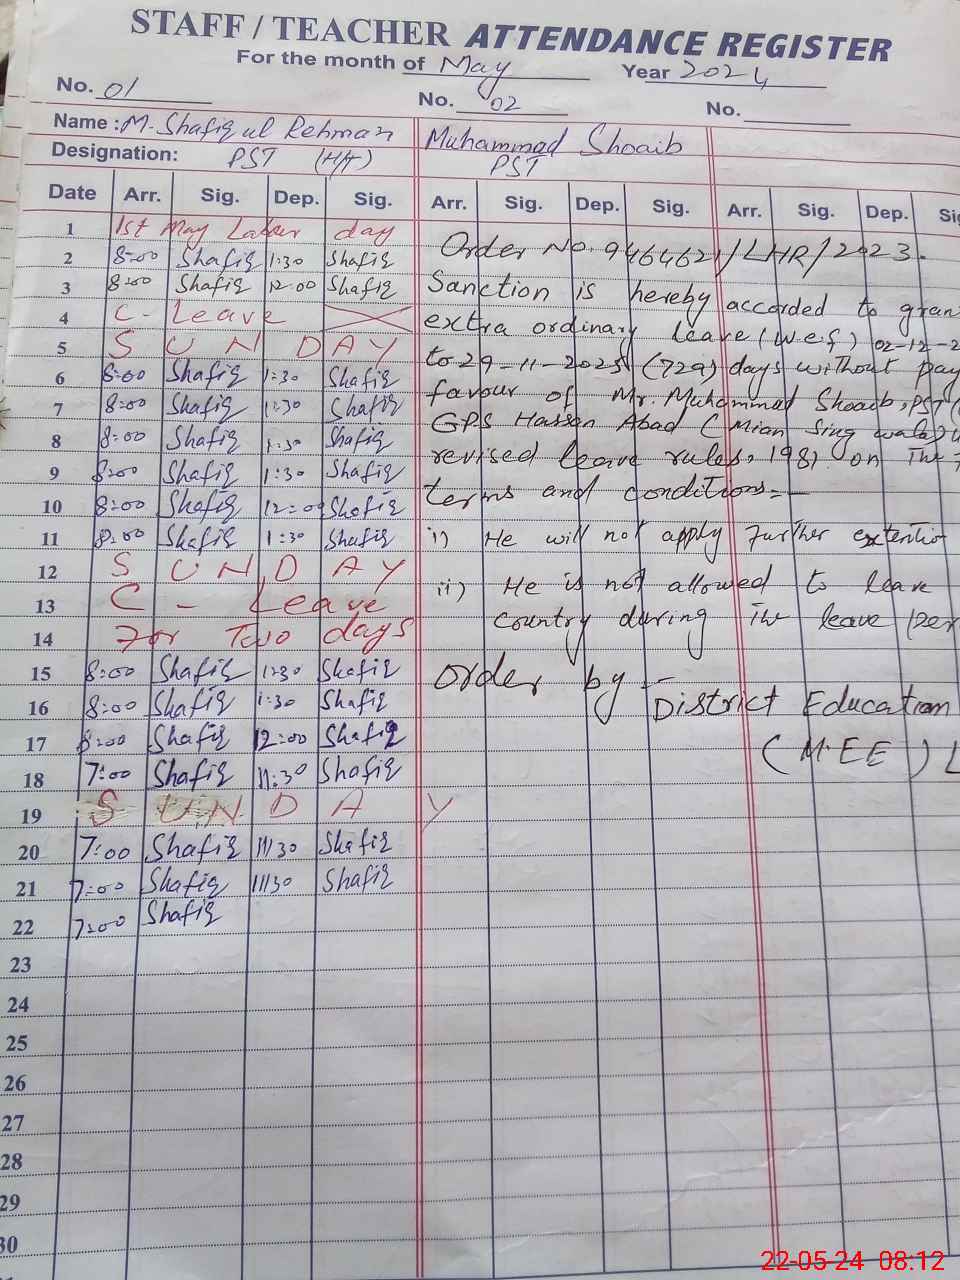 STAFF / TEACHER ATTENDANCE REGISTER
For the month of May Year 2024
No. 01 No. 02 No.
Name : M. Shafiq ul Rehman Muhammad Shoaib
Designation: PST (HT) PST
Date Arr. Sig. Dep. Sig. Arr. Sig. Dep. Sig. Arr. Sig. Dep. Sig
1 1st May Labour day
2 8:00 Shafiq 1:30 Shafiq
3 8:00 Shafiq 12:00 Shafiq
4 C - Leave
5 S U N D A Y
6 8:00 Shafiq 1:30 Shafiq
7 8:00 Shafiq 1:30 Shafiq
8 8:00 Shafiq 1:30 Shafiq
9 8:00 Shafiq 1:30 Shafiq
10 8:00 Shafiq 12:00 Shafiq
11 8:00 Shafiq 1:30 Shafiq
12 S U N D A Y
13 C - Leave
14 For Two days
15 8:00 Shafiq 1:30 Shafiq
16 8:00 Shafiq 1:30 Shafiq
17 8:00 Shafiq 12:00 Shafiq
18 7:00 Shafiq 11:30 Shafiq
19 S U N D A Y
20 7:00 Shafiq 11:30 Shafiq
21 7:00 Shafiq 11:30 Shafiq
22 7:00 Shafiq
23
24
25
26
27
28
29
30
Order No. 946462/LHR/2023.
Sanction is hereby accorded to gran
extra ordinary leave (w.e.f) 02-12-2
to 29-11-2025 (729) days without pay
favour of Mr. Muhammad Shoaib, PST (
GPS Hassan Abad (Mian Sing wala) u
revised leave rules, 1981 on the
terms and conditions:-
i) He will not apply further extentio
ii) He is not allowed to leave
country during the leave per
Order by -
District Education
(M-EE) L
22-05-24 08:12